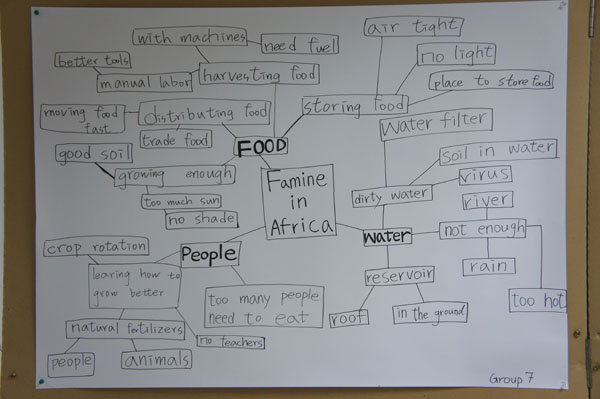 with machines
need fuel
better tools
manual labor
harvesting food
moving food
fast
distributing food
trade food
FOOD
good soil
growing enough
too much sun
no shade
air tight
no light
place to store food
storing food
Water filter
soil in water
virus
dirty water
river
Water
not enough
rain
too hot
reservoir
roof
in the ground
Famine
in
Africa
People
crop rotation
learing how to
grow better
too many people
need to eat
natural fertilizers
no teachers
people
animals
Group 7